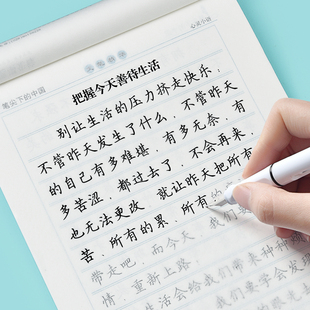 笔尖下的中国
心灵小语
把握今天善待生活
别让生活的压力挤走快乐，
不管昨天发生了什么，不管昨天
的自己有多难堪，有多无奈，有
多苦涩，都过去了，不会再来，
也无法更改，就让昨天把所有
苦、所有的累、所有的
带走吧，而今天，我们要
情，重新上路，
生活会给我们带来种种
我们要学会发现